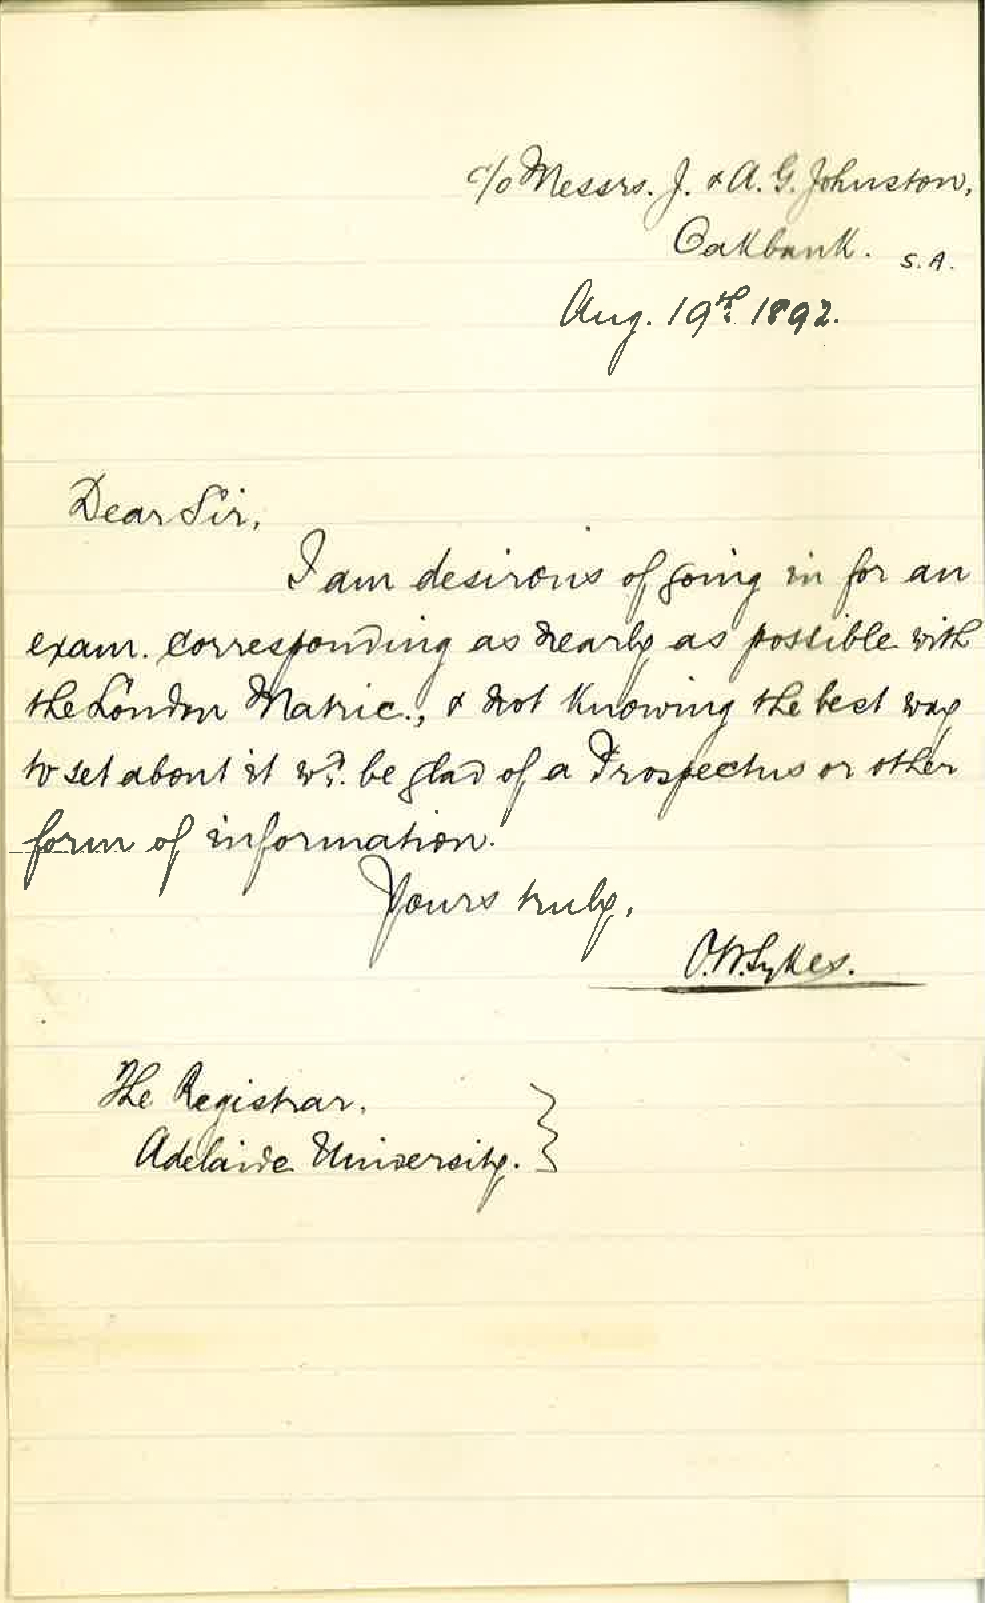 c/o Messrs. J. & A. G. Johnston,
Oakbank. S.A.
Aug. 19th 1892.
Dear Sir,
I am desirous of going in for an
exam. corresponding as nearly as possible with
the London Matric., & not knowing the best way
to set about it wd. be glad of a Prospectus or other
form of information.
Yours truly,
O. W. Sykes.
The Registrar,
Adelaide University.